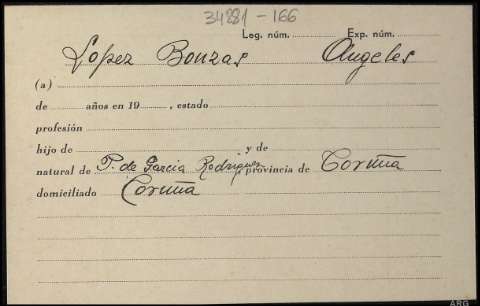 34881-166
Leg. núm. Exp. núm.
Lopez Bouzas Angeles
(a)
de años en 19 , estado
profesión
hijo de y de
natural de P. de Garcia Rodriguez provincia de Coruña
domiciliado Coruña
ARG